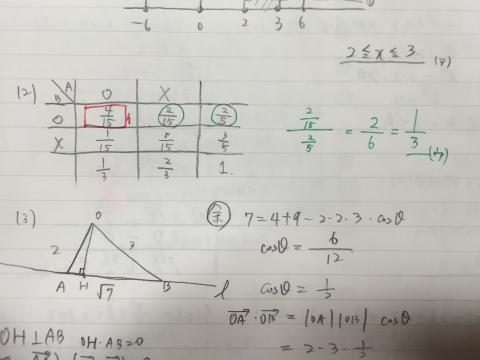 -6 0 2 3 6
2 ≦ x ≦ 3
(2) A B O X
O 4/15 2/15 2/5
X 1/15 8/15 3/5
1/3 2/3 1.
2/15 / 2/5 = 2/6 = 1/3
(3) O 2 3 A H B √7 l
余 7 = 4 + 9 - 2·2·3·cosθ
cosθ = 6/12
cosθ = 1/2
OA·OB = |OA||OB| cosθ
= 2·3·1/2
OH⊥AB OH·AB=0